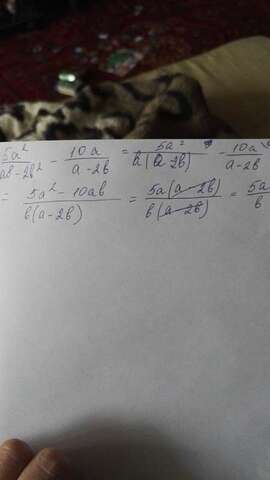 5a²/(ab-2b²) - 10a/(a-2b) = 5a²/(b(a-2b)) - 10a/(a-2b)
= (5a²-10ab)/(b(a-2b)) = 5a(a-2b)/(b(a-2b)) = 5a/b